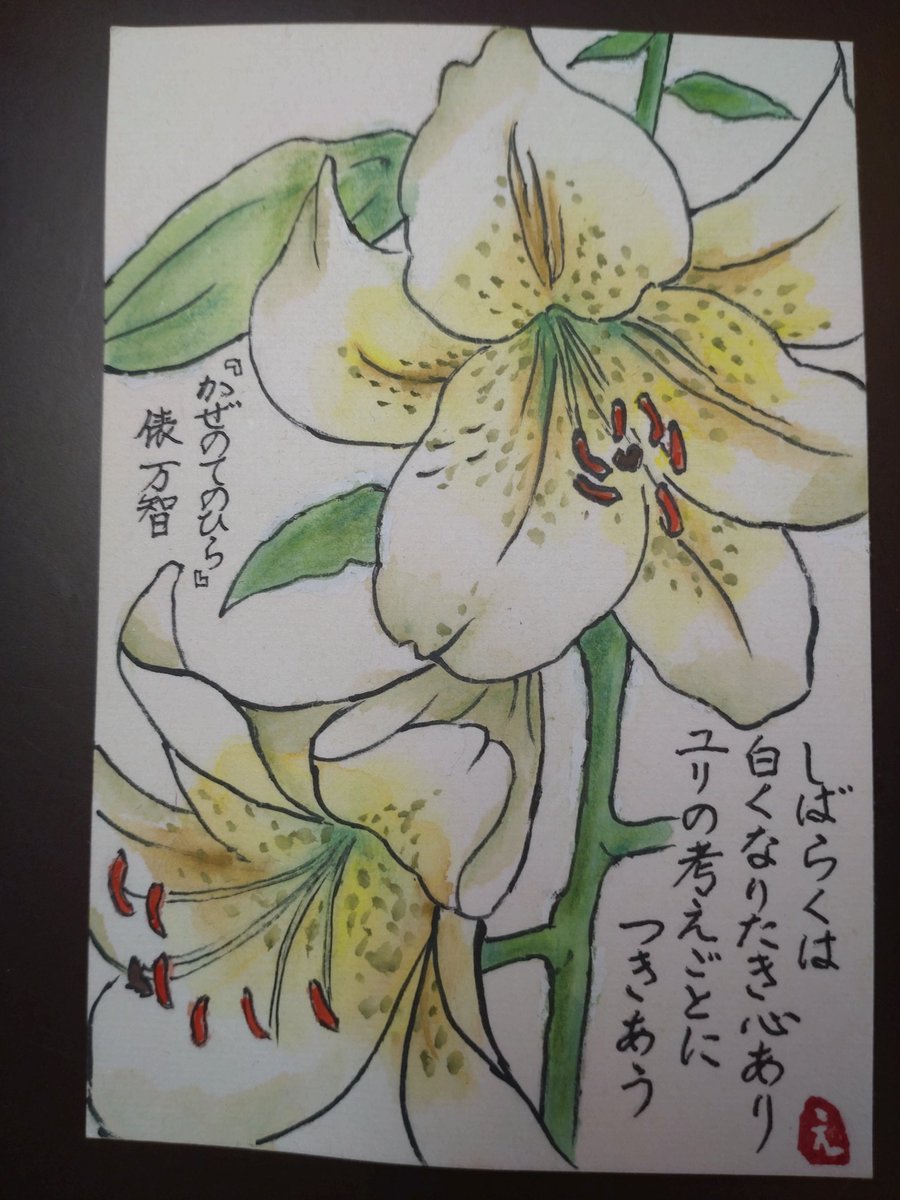 しばらくは
白くなりたき心あり
ユリの考えごとに
つきあう
『かぜのてのひら』
俵万智
え